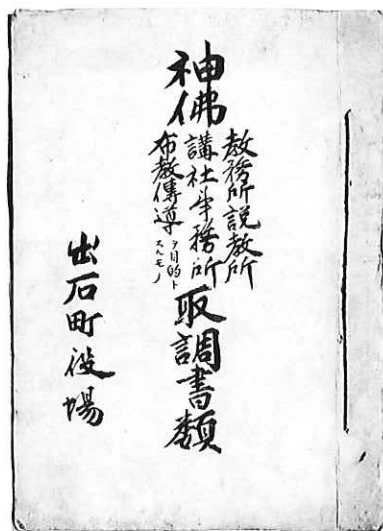 神佛
教務所説教所
講社事務所
布教傳導ヲ目的トスルモノ
取調書類
出石町役場